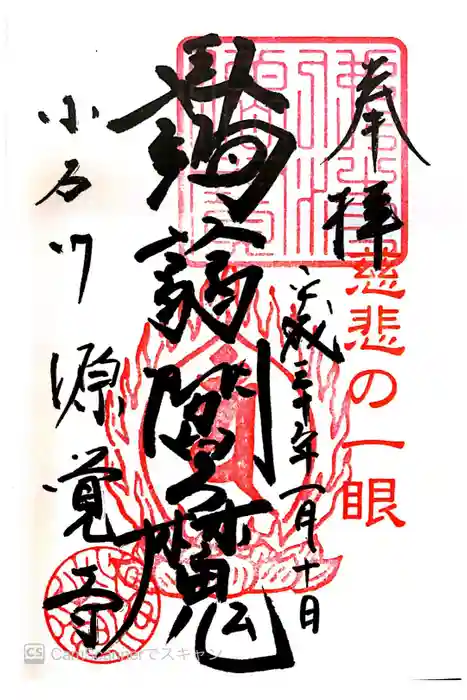 奉拝
慈悲の一眼
平成三十年一月十日
蒟蒻閻魔
小石川 源覚寺
CS CamScannerでスキャン